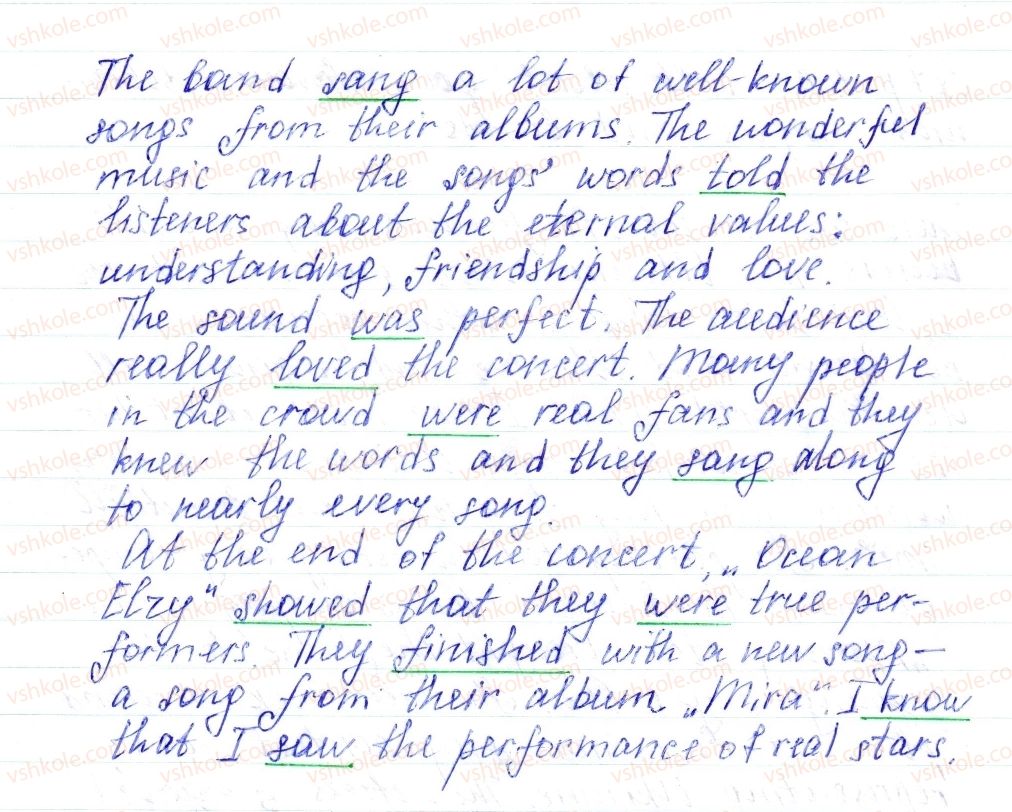 The band sang a lot of well-known
songs from their albums. The wonderful
music and the songs' words told the
listeners about the eternal values:
understanding, friendship and love.
The sound was perfect. The audience
really loved the concert. Many people
in the crowd were real fans and they
knew the words and they sang along
to nearly every song.
At the end of the concert, „Ocean
Elzy“ showed that they were true per-
formers. They finished with a new song –
a song from their album „Mira“. I know
that I saw the performance of real stars.